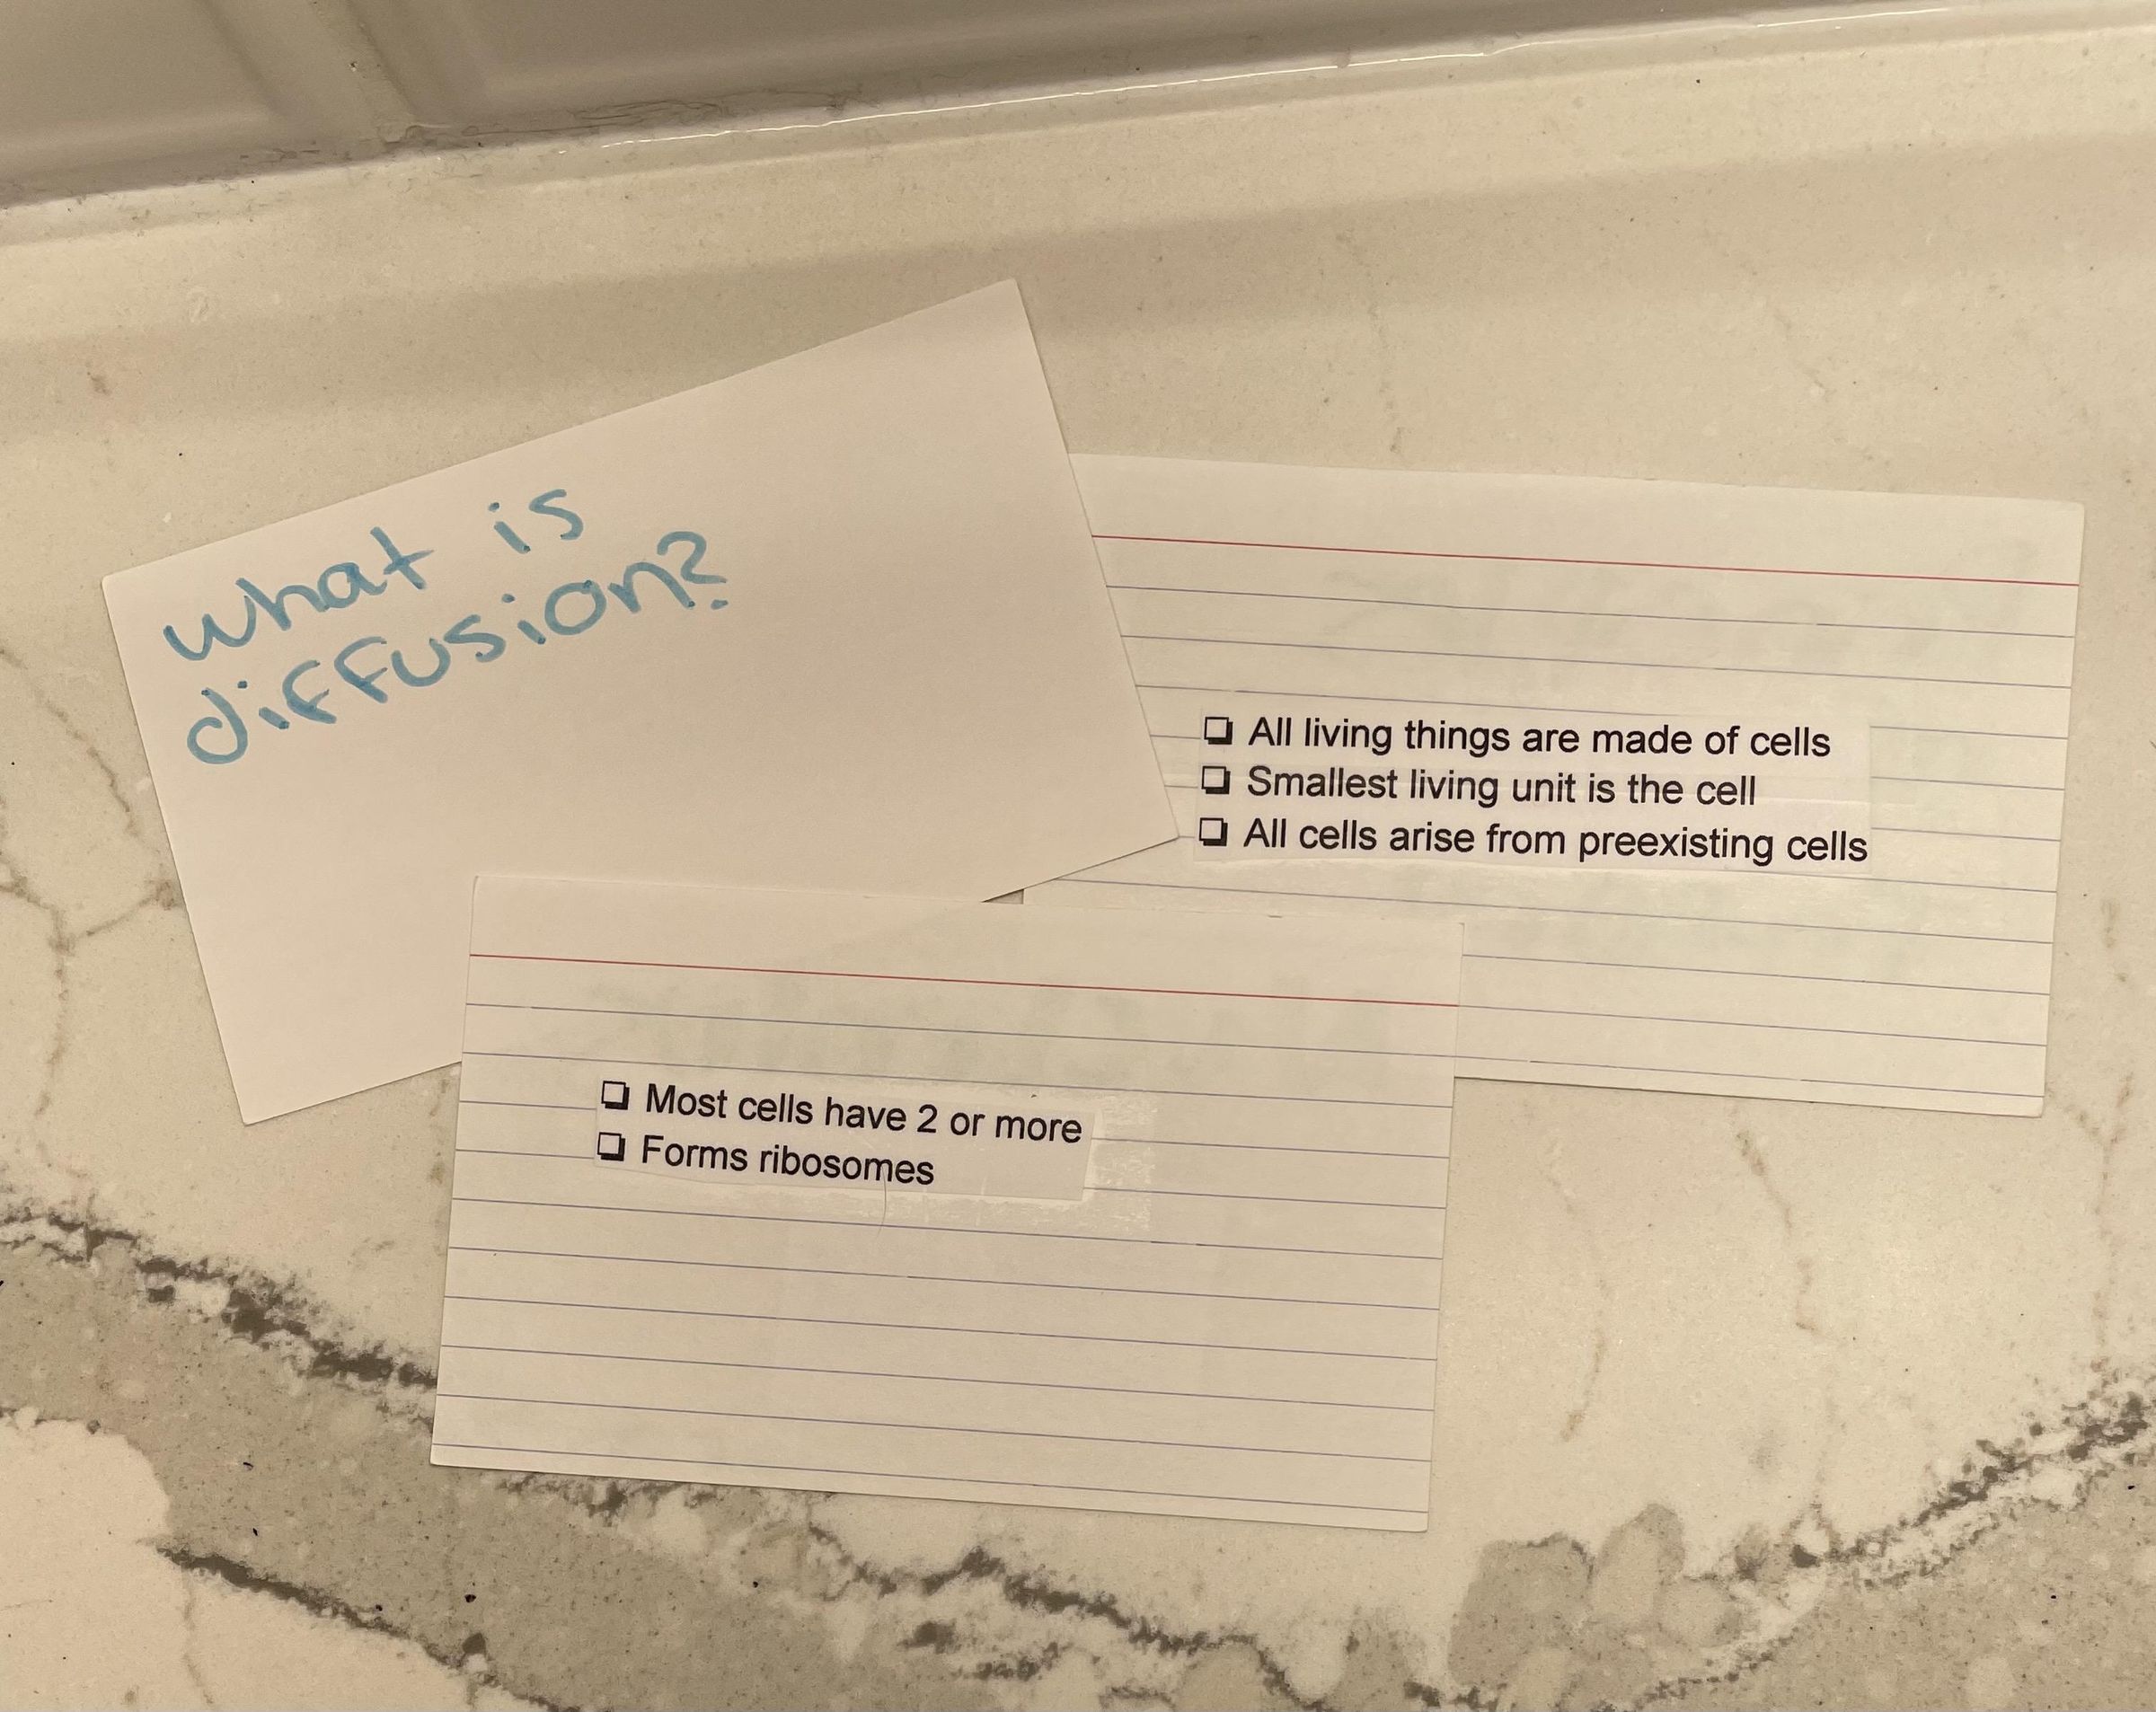 what is
diffusion?
❏ All living things are made of cells
❏ Smallest living unit is the cell
❏ All cells arise from preexisting cells
❏ Most cells have 2 or more
❏ Forms ribosomes